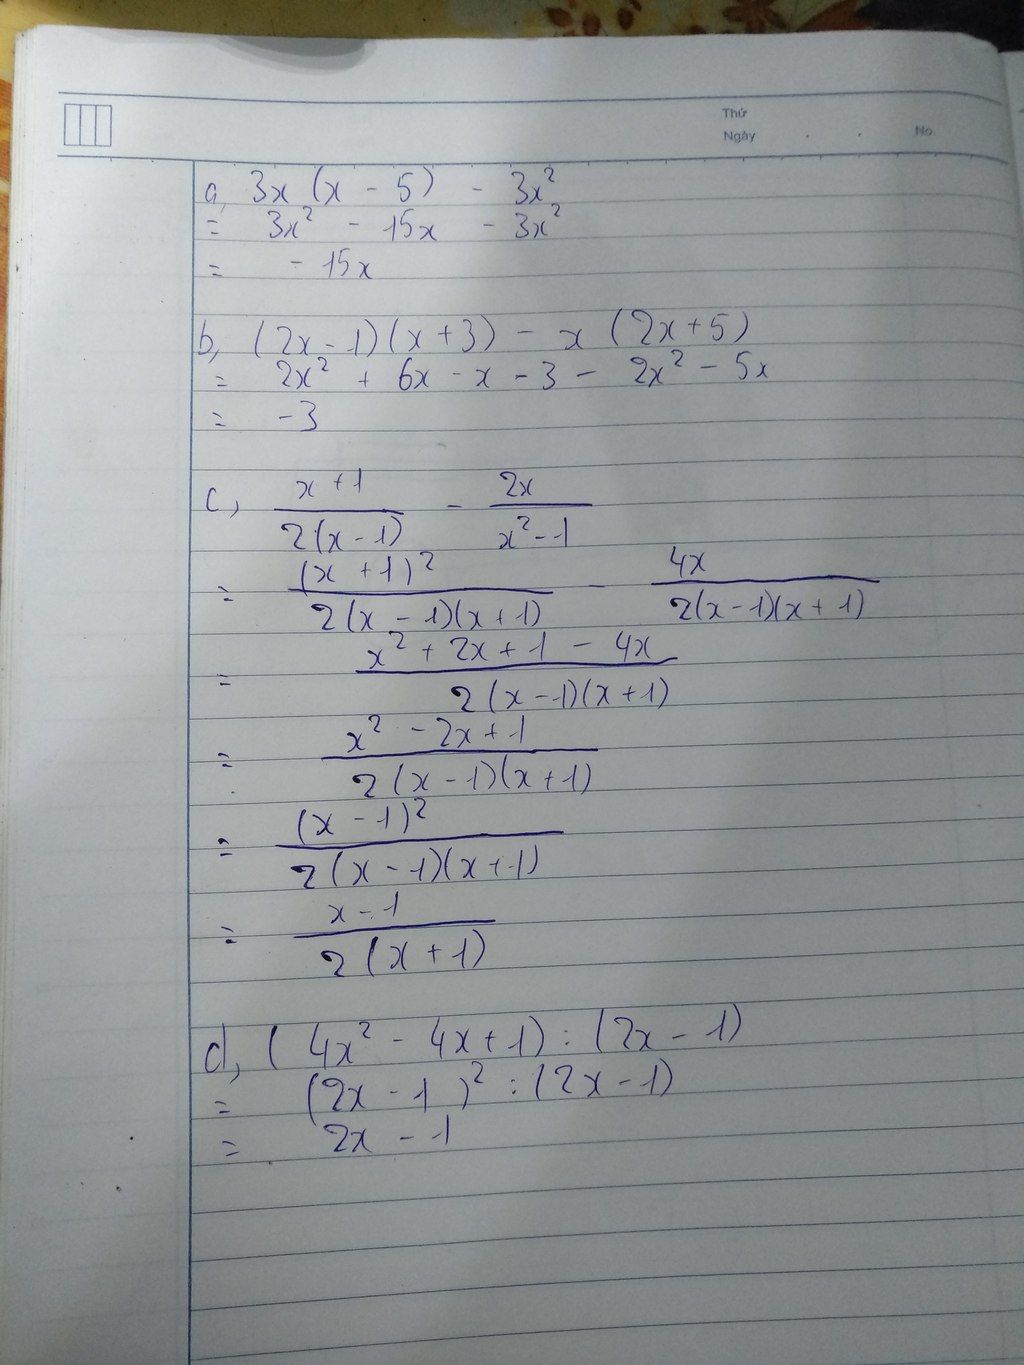 Thứ
Ngày . . No.
a, 3x (x - 5) - 3x²
= 3x² - 15x - 3x²
= - 15x
b, (2x - 1)(x + 3) - x (2x + 5)
= 2x² + 6x - x - 3 - 2x² - 5x
= -3
c, \frac{x + 1}{2(x - 1)} - \frac{2x}{x² - 1}
= \frac{(x + 1)²}{2(x - 1)(x + 1)} - \frac{4x}{2(x - 1)(x + 1)}
= \frac{x² + 2x + 1 - 4x}{2(x - 1)(x + 1)}
= \frac{x² - 2x + 1}{2(x - 1)(x + 1)}
= \frac{(x - 1)²}{2(x - 1)(x + 1)}
= \frac{x - 1}{2(x + 1)}
d, (4x² - 4x + 1) : (2x - 1)
= (2x - 1)² : (2x - 1)
= 2x - 1